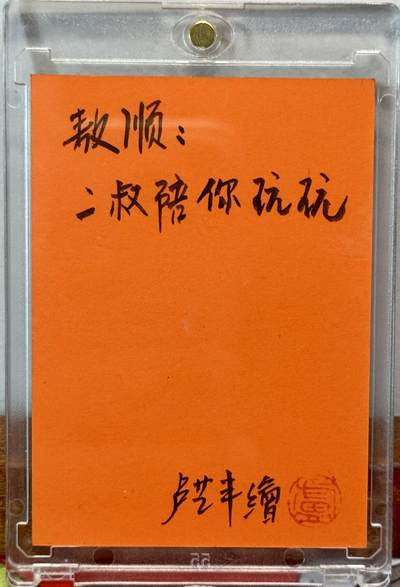 敖顺：
二叔陪你玩玩
卢丰